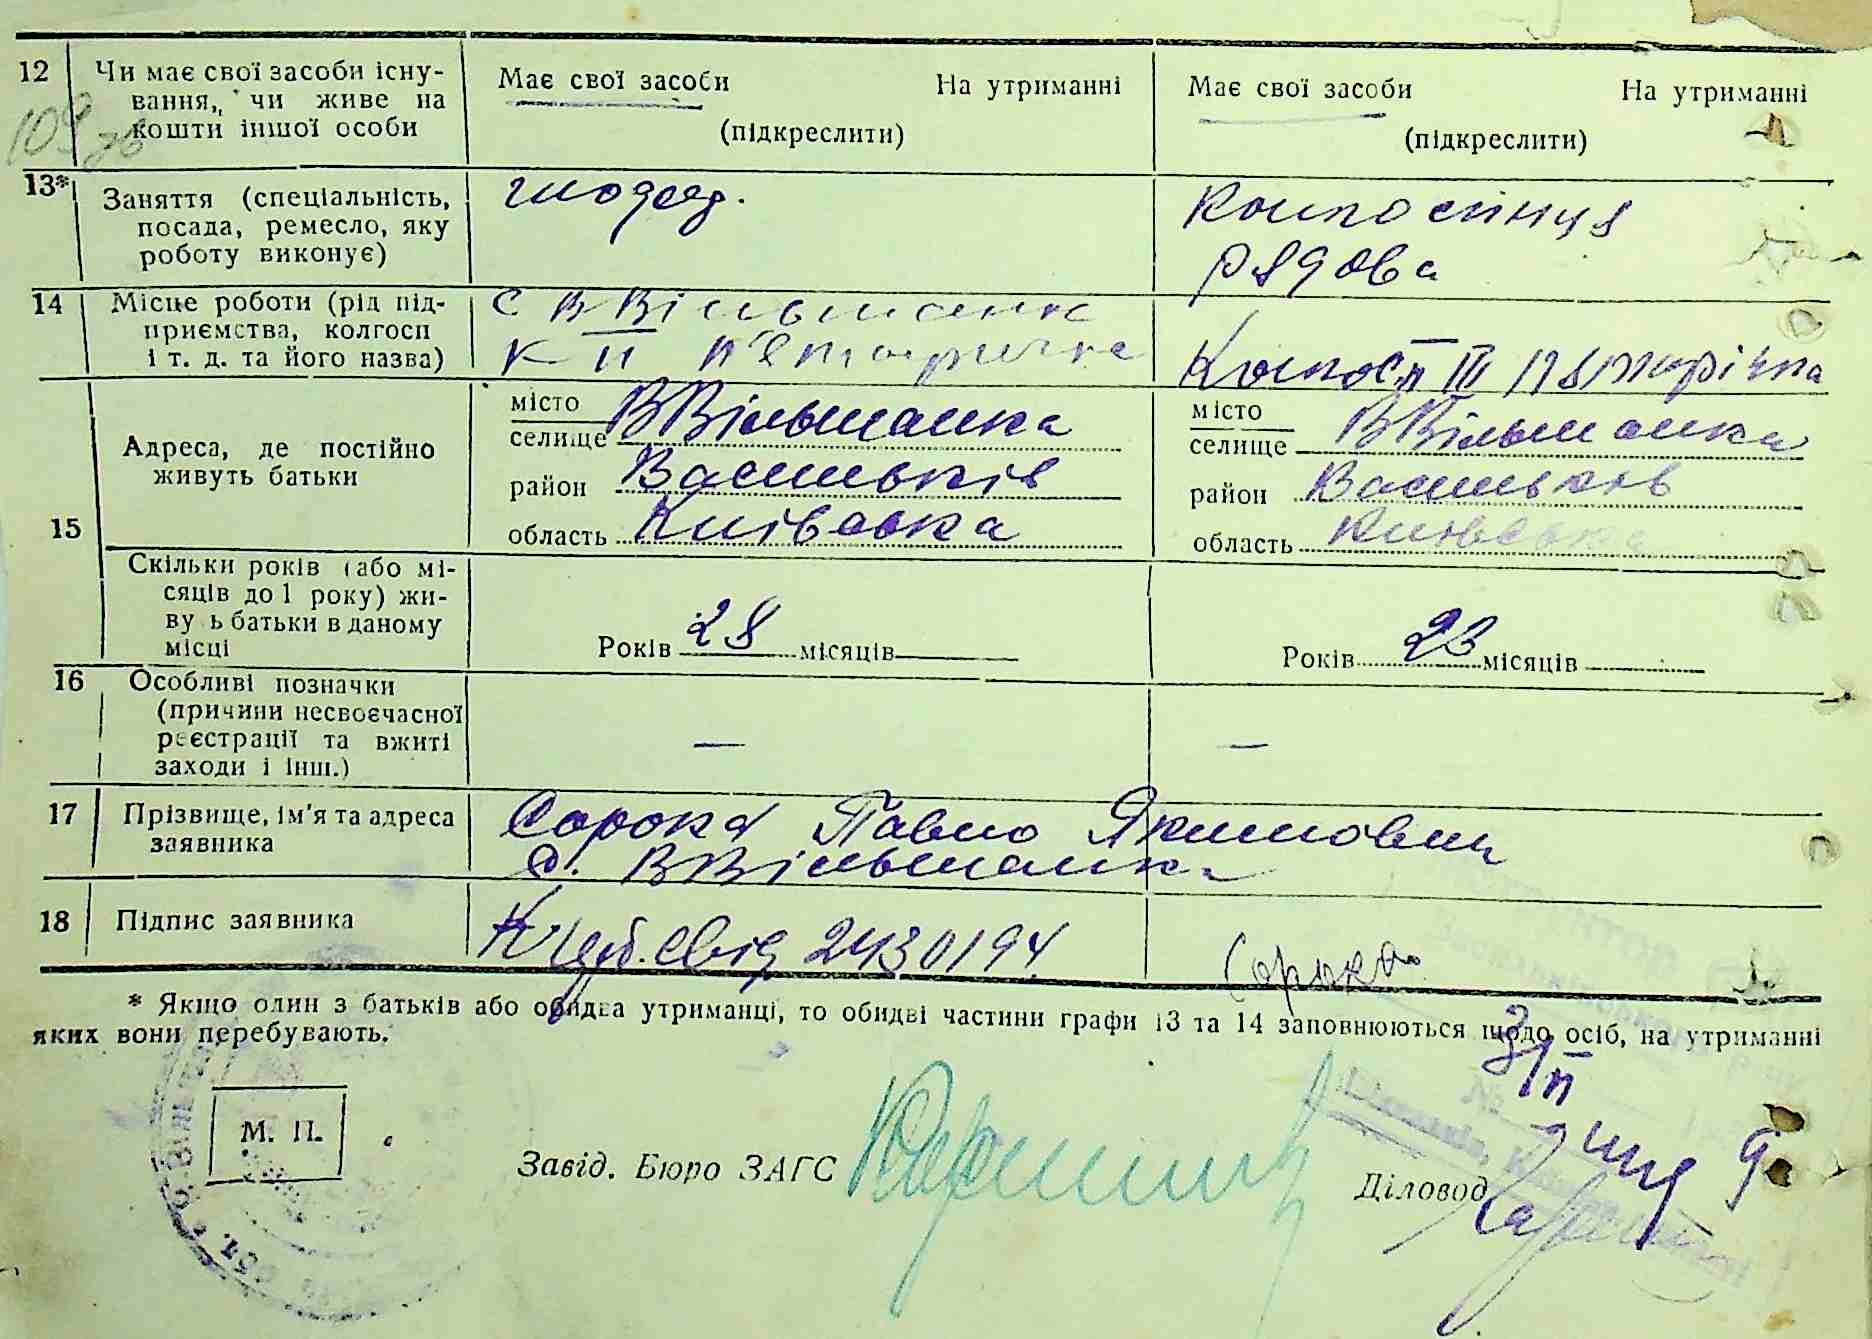 12 Чи має свої засоби існу-
вання, чи живе на
кошти іншої особи
Має свої засоби На утриманні
(підкреслити)
Має свої засоби На утриманні
(підкреслити)
109 зв
13* Заняття (спеціальність,
посада, ремесло, яку
роботу виконує)
рядова
14 Місце роботи (рід під-
приємства, колгосп
і т. д. та його назва)
с ВВільшанка
К II п'ятирічка
III п'ятирічка
15 Адреса, де постійно
живуть батьки
місто
селище ВВільшанка
район Васильків
область Київська
місто
селище ВВільшанка
район Васильков
область Київська
Скільки років (або мі-
сяців до 1 року) жи-
ву ь батьки в даному
місці
Років 28 місяців
Років 23 місяців
16 Особливі позначки
(причини несвоєчасної
реєстрації та вжиті
заходи і інш.)
—
—
17 Прізвище, ім'я та адреса
заявника
Сорока Павло Якимович
с. ВВільшанка
18 Підпис заявника
2430194
Сорока
* Якщо один з батьків або обидва утриманці, то обидві частини графи 13 та 14 заповнюються щодо осіб, на утриманні
яких вони перебувають.
М. П.
Завід. Бюро ЗАГС
Діловод